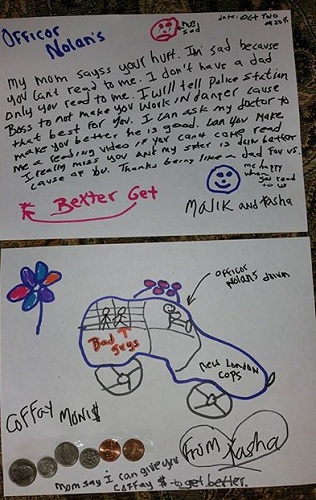 Officor
Nolan's
me
sad
Date: Oct Two
My mom sayss your hurt. I'm sad because
you can't read to me. I don't have a dad
only you read to me. I will tell Police Station
Boss to not make you work in danger cause
that best for you. I can ask my doctor to
make you better he is good. Can you make
me a reading video if you can't come read
I really miss you and my sister is better
cause of you. Thanks being like a dad for us.
Better Get
me happy
when
you read
to us
Malik and Kasha
officor
Nolan's drivin
Bad
guys
new London
cops
Coffay Moni$
From Kasha
mom say I can give you
coffay $ to get better.